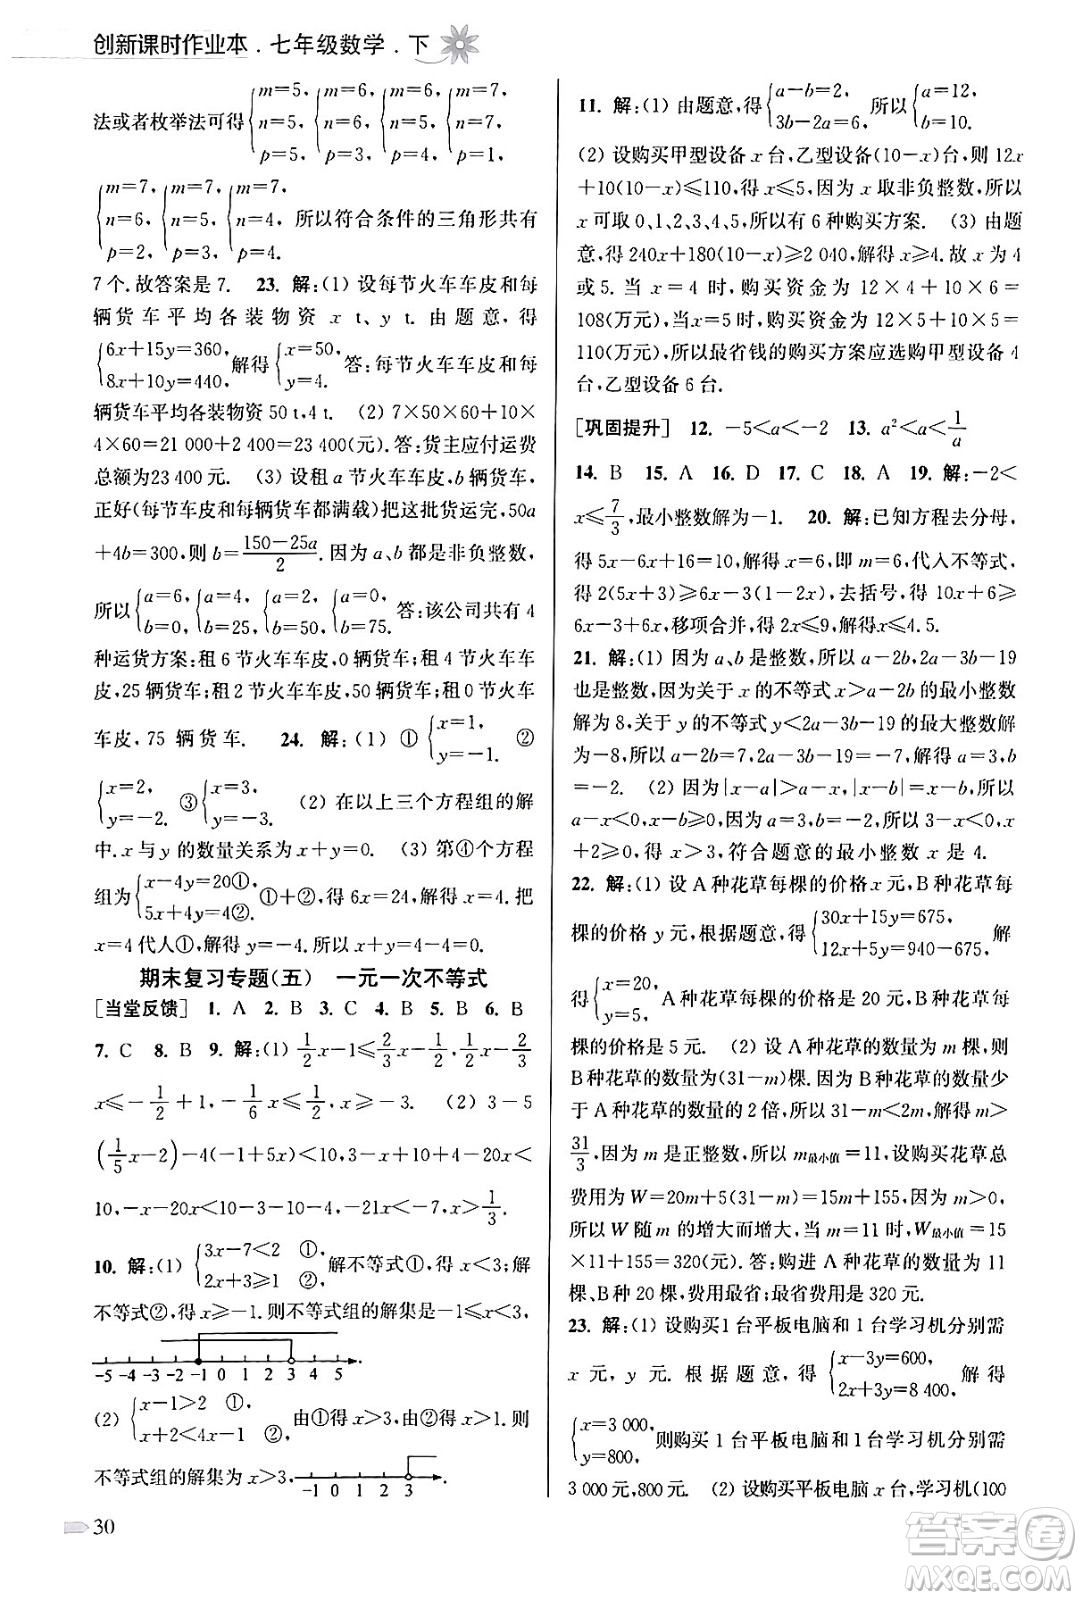 创新课时作业本 . 七年级数学 . 下
法或者枚举法可得{m=5, n=5, p=5, {m=6, n=6, p=3, {m=6, n=5, p=4, {m=7, n=7, p=1,
{m=7, n=6, p=2, {m=7, n=5, p=3, {m=7, n=4, p=4, 所以符合条件的三角形共有
7个.故答案是7. 23. 解:(1)设每节火车车皮和每
辆货车平均各装物资 x t、y t. 由题意，得
{6x+15y=360, 8x+10y=440, 解得{x=50, y=4. 答:每节火车车皮和每
辆货车平均各装物资 50 t,4 t. (2) 7×50×60+10×
4×60=21 000+2 400=23 400(元).答:货主应付运费
总额为23 400元. (3) 设租a节火车车皮,b辆货车,
正好(每节车皮和每辆货车都满载)把这批货运完,50a
+4b=300,则 b=(150-25a)/2. 因为 a、b 都是非负整数,
所以{a=6, b=0, {a=4, b=25, {a=2, b=50, {a=0, b=75. 答:该公司共有4
种运货方案:租6节火车车皮,0辆货车;租4节火车车
皮,25辆货车;租2节火车车皮,50辆货车;租0节火车
车皮,75 辆货车. 24. 解:(1) ①{x=1, y=-1. ②
{x=2, y=-2. ③{x=3, y=-3. (2) 在以上三个方程组的解
中.x与y的数量关系为x+y=0. (3) 第④个方程
组为{x-4y=20①, 5x+4y=4②, ①+②,得6x=24,解得x=4,把
x=4代人①,解得y=-4.所以x+y=4-4=0.
期末复习专题(五) 一元一次不等式
[当堂反馈] 1. A 2. B 3. C 4. B 5. B 6. B
7. C 8. B 9. 解:(1) 1/2x-1≤2/3x-1/2,1/2x-2/3
x≤-1/2+1,-1/6x≤1/2,x≥-3. (2) 3-5
(1/5x-2)-4(-1+5x)<0,3-x+10+4-20x<
10,-x-20x<10-3-10-4,-21x<-7,x>1/3.
10. 解:(1) {3x-7<2 ①, 2x+3≥1 ②. 解不等式①,得x<3,解
不等式②,得x≥-1.则不等式组的解集是-1≤x<3,
-5 -4 -3 -2 -1 0 1 2 3 4 5 .
(2) {x-1>2 ①, x+2<4x-1 ②. 由①得x>3,由②得x>1.则
不等式组的解集为x>3. -1 0 1 2 3 .
30
11. 解:(1) 由题意,得{a-b=2, 3b-2a=6, 所以{a=12, b=10.
(2) 设购买甲型设备x台,乙型设备(10-x)台,则12x
+10(10-x)≤110,得x≤5,因为x取非负整数,所以
x可取0、1、2、3、4、5,所以有6种购买方案. (3) 由题
意,得240x+180(10-x)≥2 040,解得x≥4,则x为4
或5.当x=4时,购买资金为12×4+10×6=
108(万元),当x=5时,购买资金为12×5+10×5=
110(万元),所以最省钱的购买方案应选购甲型设备4
台,乙型设备6台.
[巩固提升] 12. -5<a<-2 13. a²<a<1/a
14. B 15. A 16. D 17. C 18. A 19. 解:-2<
x≤7/3,最小整数解为-1. 20. 解:已知方程去分母,
得5x-6x+16=10,解得x=6,即m=6,代入不等式,
得2(5x+3)≥6x-3(1-2x),去括号,得10x+6≥
6x-3+6x,移项合并,得2x≤9,解得x≤4.5.
21. 解:(1)因为a、b是整数,所以a-2b,2a-3b-19
也是整数,因为关于x的不等式x>a-2b的最小整数
解为8,关于y的不等式y<2a-3b-19的最大整数解
为-8,所以a-2b=7,2a-3b-19=-7,解得a=3,b
=-2. (2)因为|x-a|>a-x,|x-b|=x-b,所以
a-x<0,x-b≥0.因为a=3,b=-2,所以3-x<0,x
+2≥0.解得x>3,符合题意的最小整数x是4.
22. 解:(1)设A种花草每棵的价格x元,B种花草每
棵的价格y元,根据题意,得{30x+15y=675, 12x+5y=940-675, 解
得{x=20, y=5. A种花草每棵的价格是20元,B种花草每
棵的价格是5元. (2) 设A种花草的数量为m棵,则
B种花草的数量为(31-m)棵.因为B种花草的数量少
于A种花草的数量的2倍,所以31-m<2m,解得m>
31/3,因为m是正整数,所以m最小值=11,设购买花草总
费用为W=20m+5(31-m)=15m+155,因为m>0,
所以W随m的增大而增大,当m=11时,W最小值=15
×11+155=320(元).答:购进A种花草的数量为11
棵、B种20棵,费用最省;最省费用是320元.
23. 解:(1)设购买1台平板电脑和1台学习机分别需
x元,y元.根据题意,得{x-3y=600, 2x+3y=8 400, 解得
{x=3 000, y=800, 则购买1台平板电脑和1台学习机分别需
3 000元,800元. (2) 设购买平板电脑x台,学习机(100
答案圈
MXQE.COM